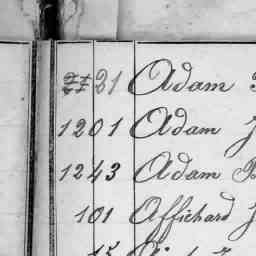 21 Adam
1201 Adam J
1243 Adam B
101 Affichard J
15